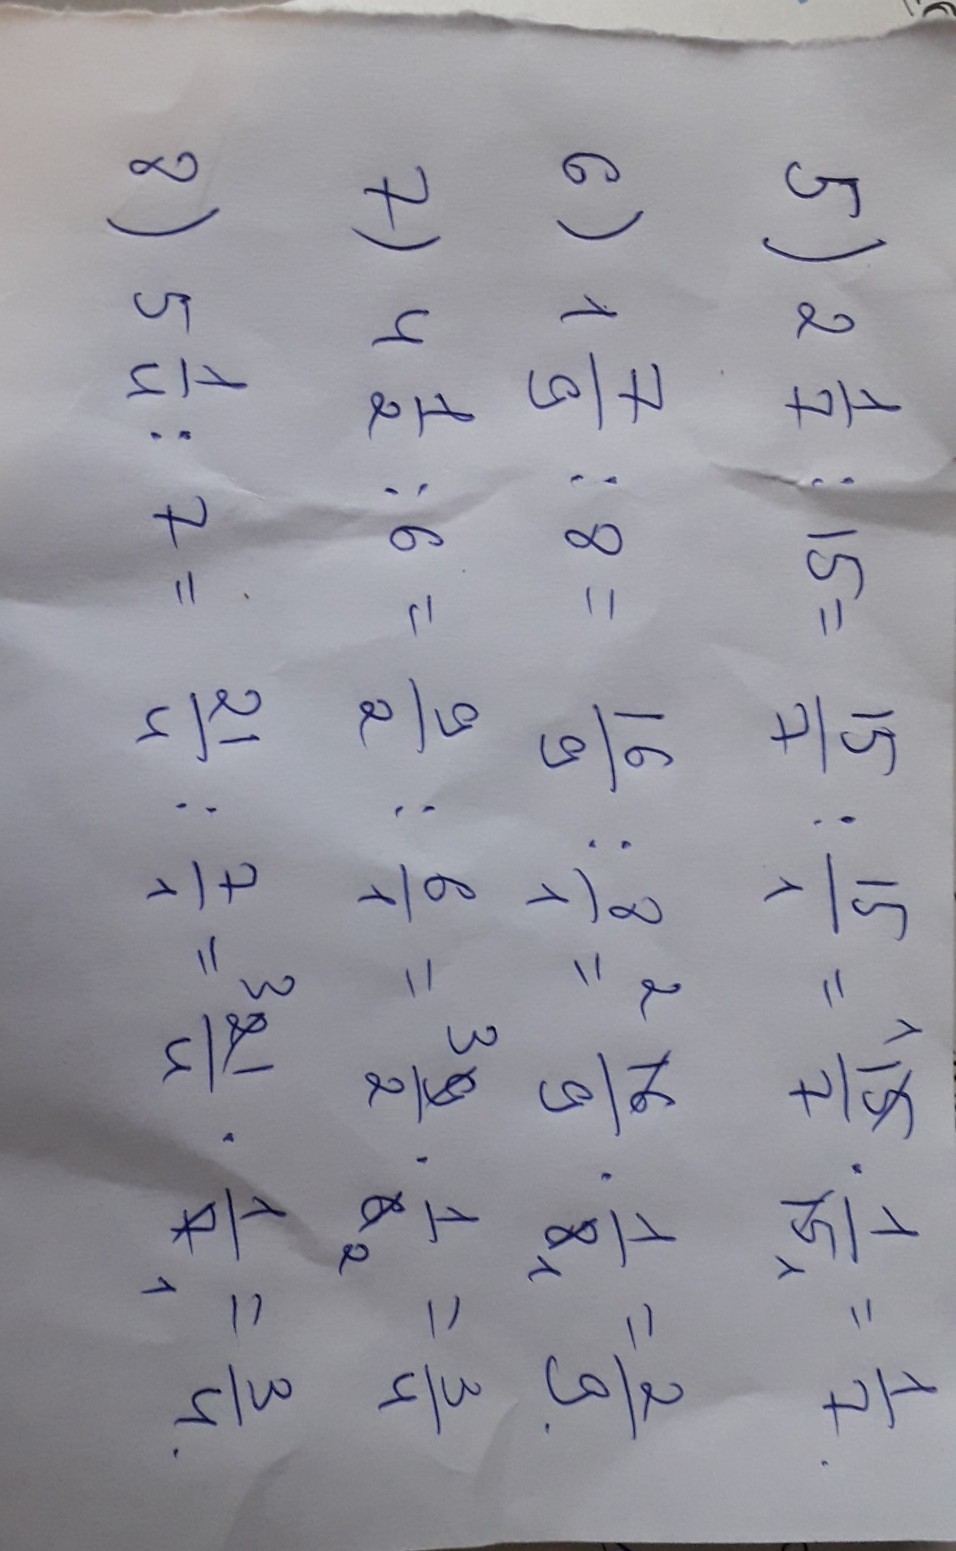 5) 2 1/7 : 15 = 15/7 : 15/1 = ¹15/7 · 1/15₁ = 1/7.
6) 1 7/9 : 8 = 16/9 : 8/1 = ²16/9 · 1/8₁ = 2/9.
7) 4 1/2 : 6 = 9/2 : 6/1 = ³9/2 · 1/6₂ = 3/4
8) 5 1/4 : 7 = 21/4 : 7/1 = ³21/4 · 1/7₁ = 3/4.